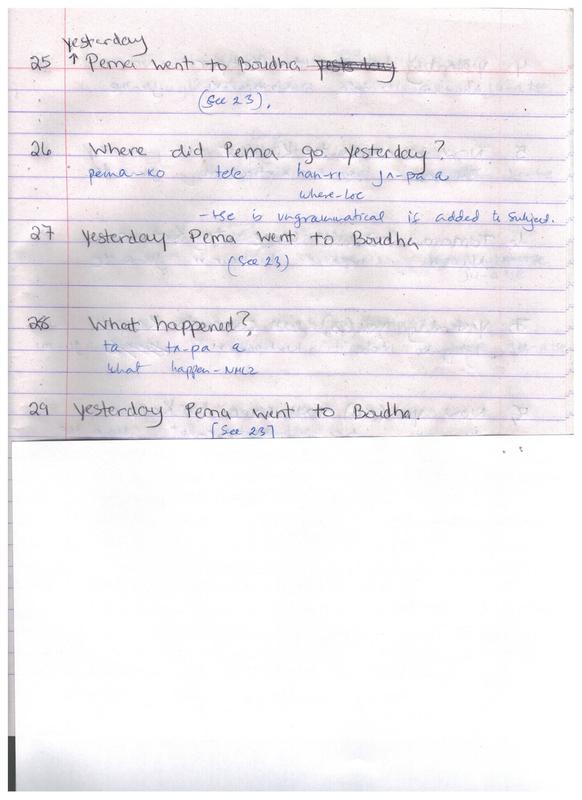 yesterday
25 ↑ Pema went to Boudha yesterday
(see 23).
26 Where did Pema go yesterday?
pema-ko tele han-ri jʌ-pa a
where-LOC
-tse is ungrammatical if added to subject.
27 Yesterday Pema went to Boudha
(see 23)
28 What happened?
ta tʌ-pa a
what happen-NMLZ
29 Yesterday Pema went to Boudha.
[see 23]